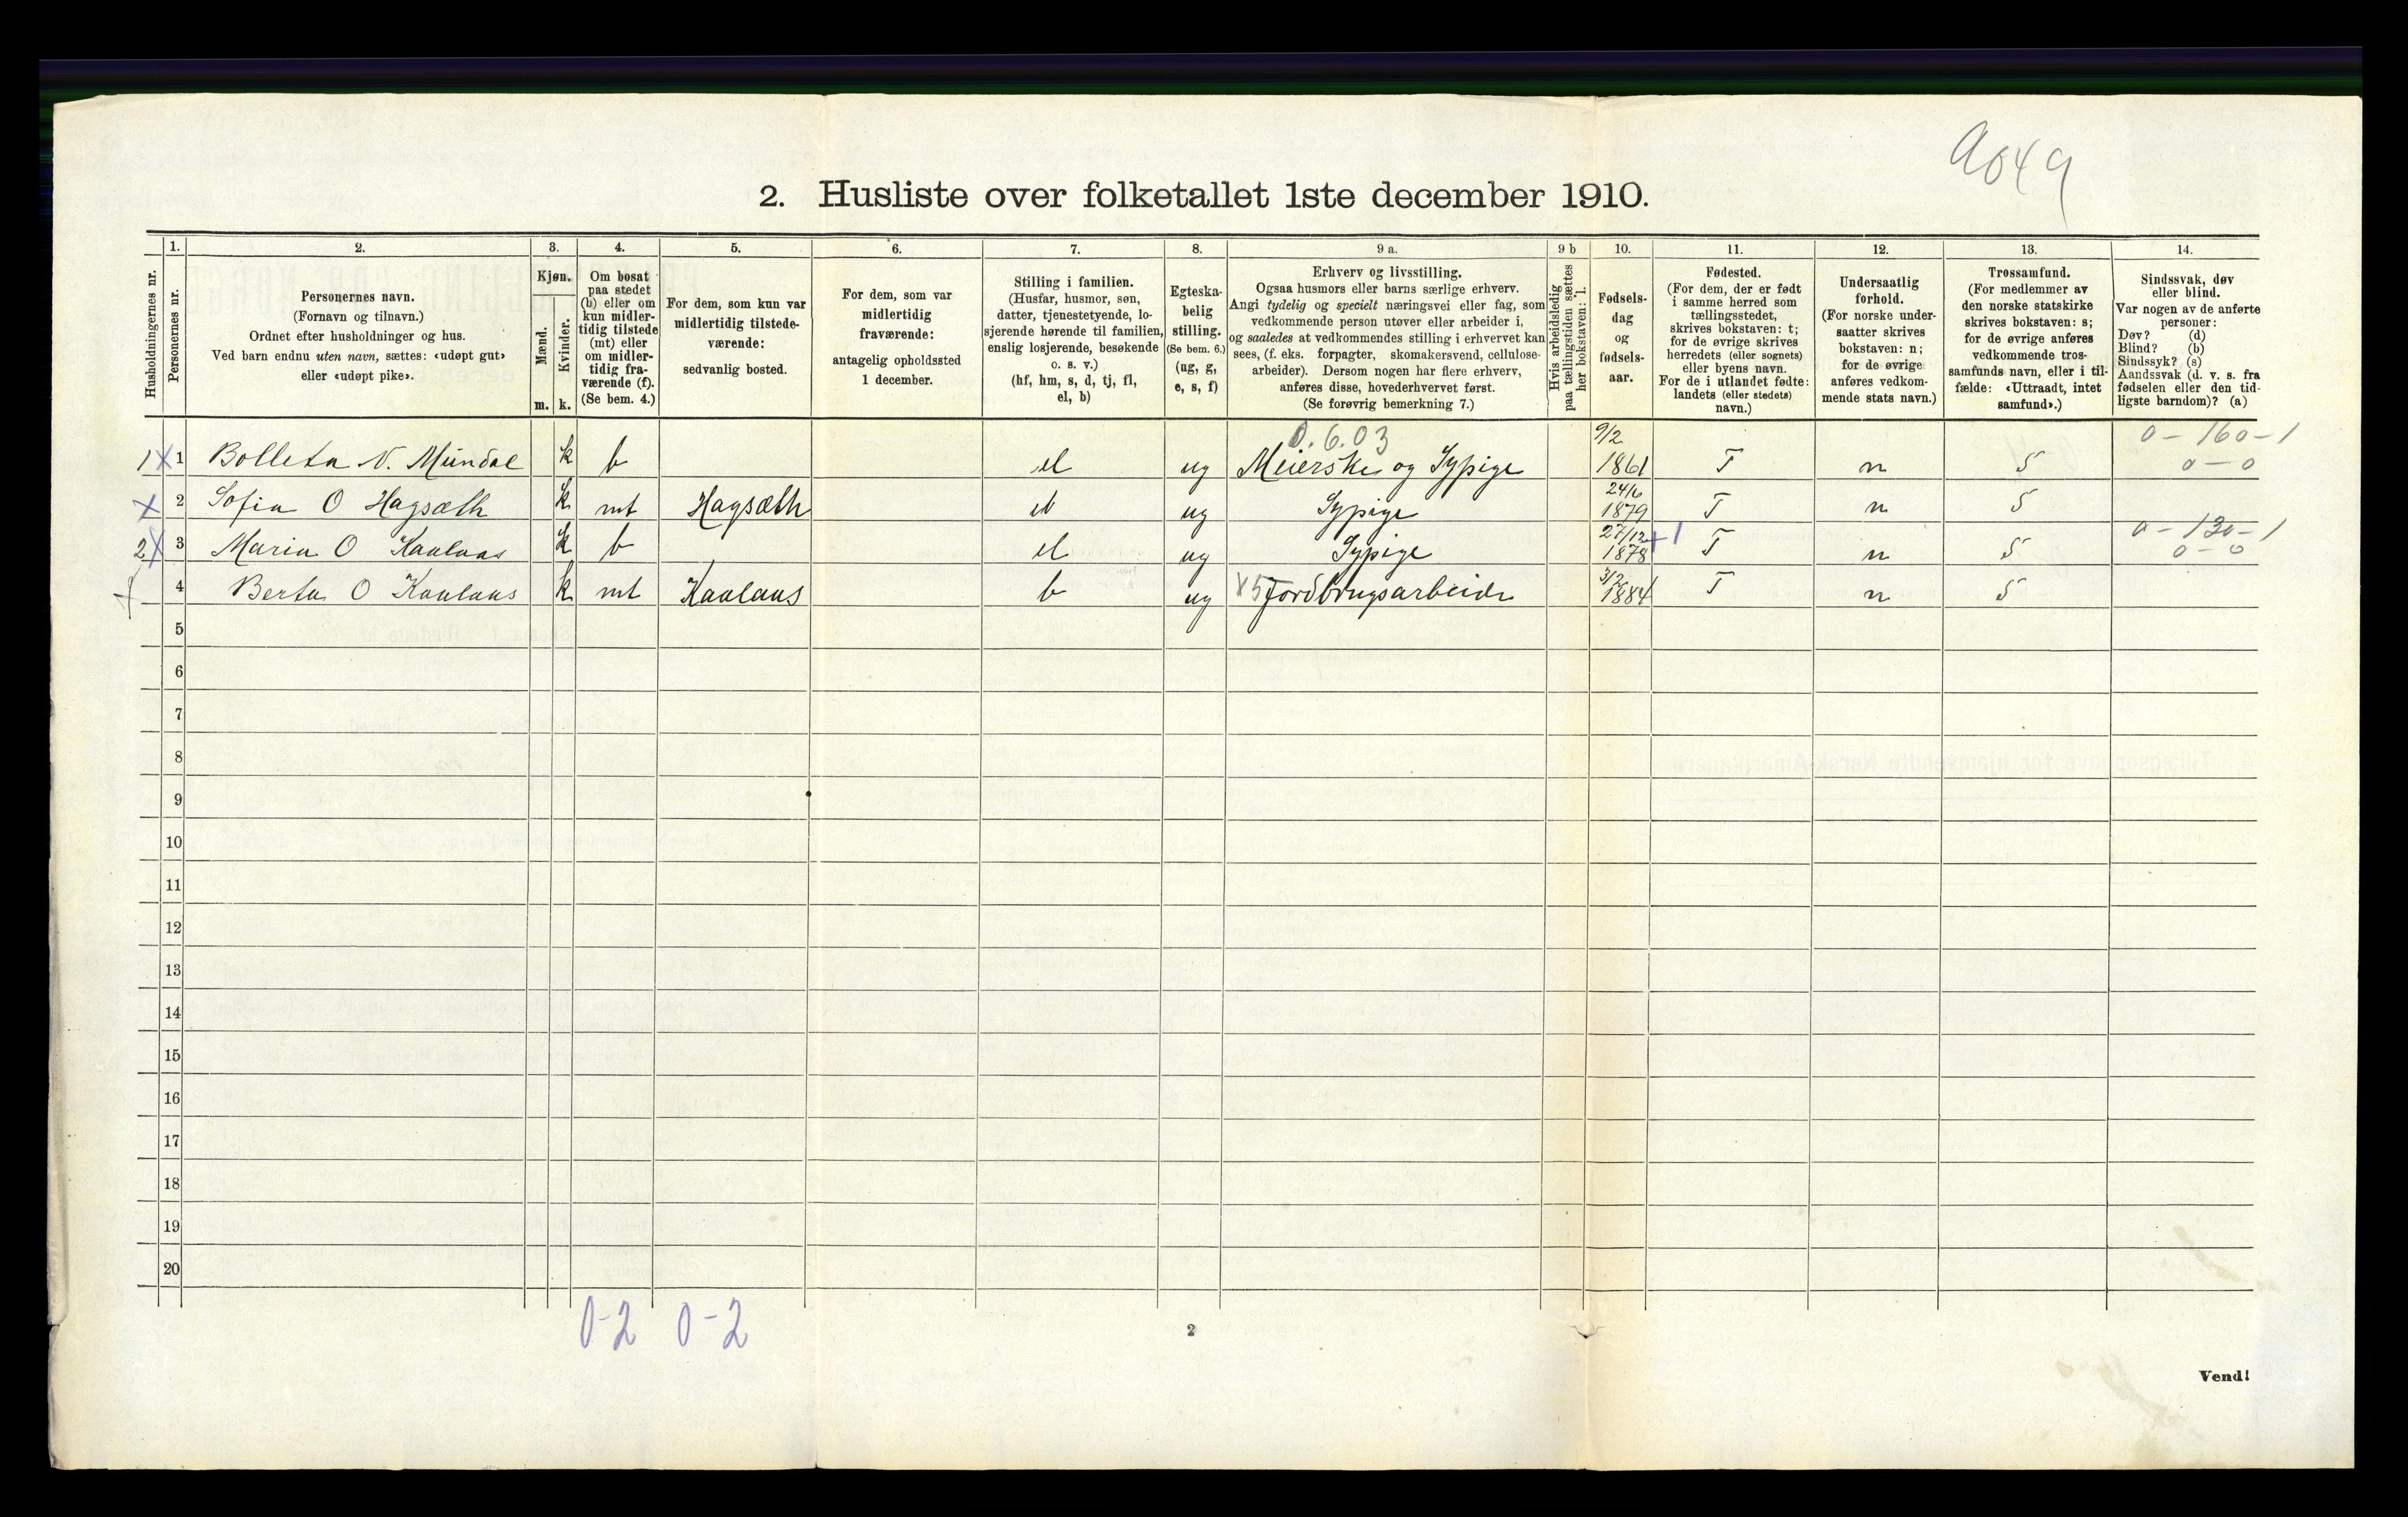 9049
2. Husliste over folketallet 1ste december 1910.
Husholdningernes nr.
1.
Personernes nr.
2.
Personernes navn.
(Fornavn og tilnavn.)
Ordnet efter husholdninger og hus.
Ved barn endnu uten navn, sættes: «udøpt gut»
eller «udøpt pike».
3.
Kjøn.
Mænd.
Kvinder.
m. k.
4.
Om bosat
paa stedet
(b) eller om
kun midler-
tidig tilstede
(mt) eller
om midler-
tidig fra-
værende (f).
(Se bem. 4.)
5.
For dem, som kun var
midlertidig tilstede-
værende:
sedvanlig bosted.
6.
For dem, som var
midlertidig
fraværende:
antagelig opholdssted
1 december.
7.
Stilling i familien.
(Husfar, husmor, søn,
datter, tjenestetyende, lo-
sjerende hørende til familien,
enslig losjerende, besøkende
o. s. v.)
(hf, hm, s, d, tj, fl,
el, b)
8.
Egteska-
belig
stilling.
(Se bem. 6.)
(ug, g,
e, s, f)
9 a.
Erhverv og livsstilling.
Ogsaa husmors eller barns særlige erhverv.
Angi tydelig og specielt næringsvei eller fag, som
vedkommende person utøver eller arbeider i,
og saaledes at vedkommendes stilling i erhvervet kan
sees, (f. eks. forpagter, skomakersvend, cellulose-
arbeider). Dersom nogen har flere erhverv,
anføres disse, hovederhvervet først.
(Se forøvrig bemerkning 7.)
9 b
Hvis arbeidsledig
paa tællingstiden sættes
her bokstaven: l.
10.
Fødsels-
dag
og
fødsels-
aar.
11.
Fødested.
(For dem, der er født
i samme herred som
tællingsstedet,
skrives bokstaven: t;
for de øvrige skrives
herredets (eller sognets)
eller byens navn.
For de i utlandet fødte:
landets (eller stedets)
navn.)
12.
Undersaatlig
forhold.
(For norske under-
saatter skrives
bokstaven: n;
for de øvrige
anføres vedkom-
mende stats navn.)
13.
Trossamfund.
(For medlemmer av
den norske statskirke
skrives bokstaven: s;
for de øvrige anføres
vedkommende tros-
samfunds navn, eller i til-
fælde: «Uttraadt, intet
samfund».)
14.
Sindssvak, døv
eller blind.
Var nogen av de anførte
personer:
Døv? (d)
Blind? (b)
Sindssyk? (s)
Aandssvak (d. v. s. fra
fødselen eller den tid-
ligste barndom)? (a)
0.6.03 9/2 0-160-1
1 X 1 Bolleta N. Mundal k b el ug Meierske og Sypige 1861 T n S 0-0
X 2 Sofia O Hagsæth k mt Hagsæth el ug Sypige 24/6 1879 T n S
2 X 3 Maria O Kaalaas k b el ug Sypige 27/12 1878 +1 T n S 0-130-1 0-0
X 4 Berta O Kaalaas k mt Kaalaas b ug X5 Jordbrugsarbeide 3/2 1884 T n S
5
6
7
8
9
10
11
12
13
14
15
16
17
18
19
20
0-2 0-2
2
Vend!